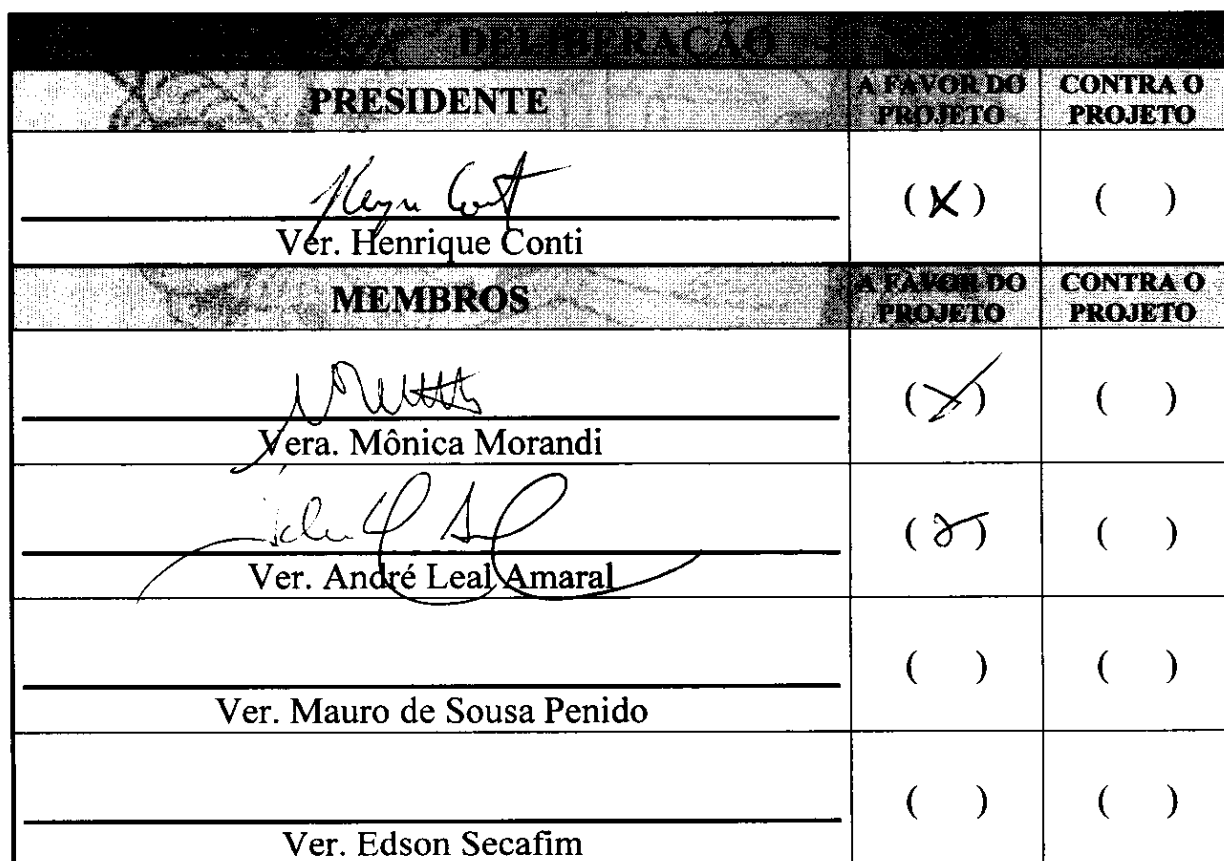 DELIBERAÇÃO
PRESIDENTE A FAVOR DO PROJETO CONTRA O PROJETO
(X) ( )
Ver. Henrique Conti
MEMBROS A FAVOR DO PROJETO CONTRA O PROJETO
(X) ( )
Vera. Mônica Morandi
(X) ( )
Ver. André Leal Amaral
( ) ( )
Ver. Mauro de Sousa Penido
( ) ( )
Ver. Edson Secafim